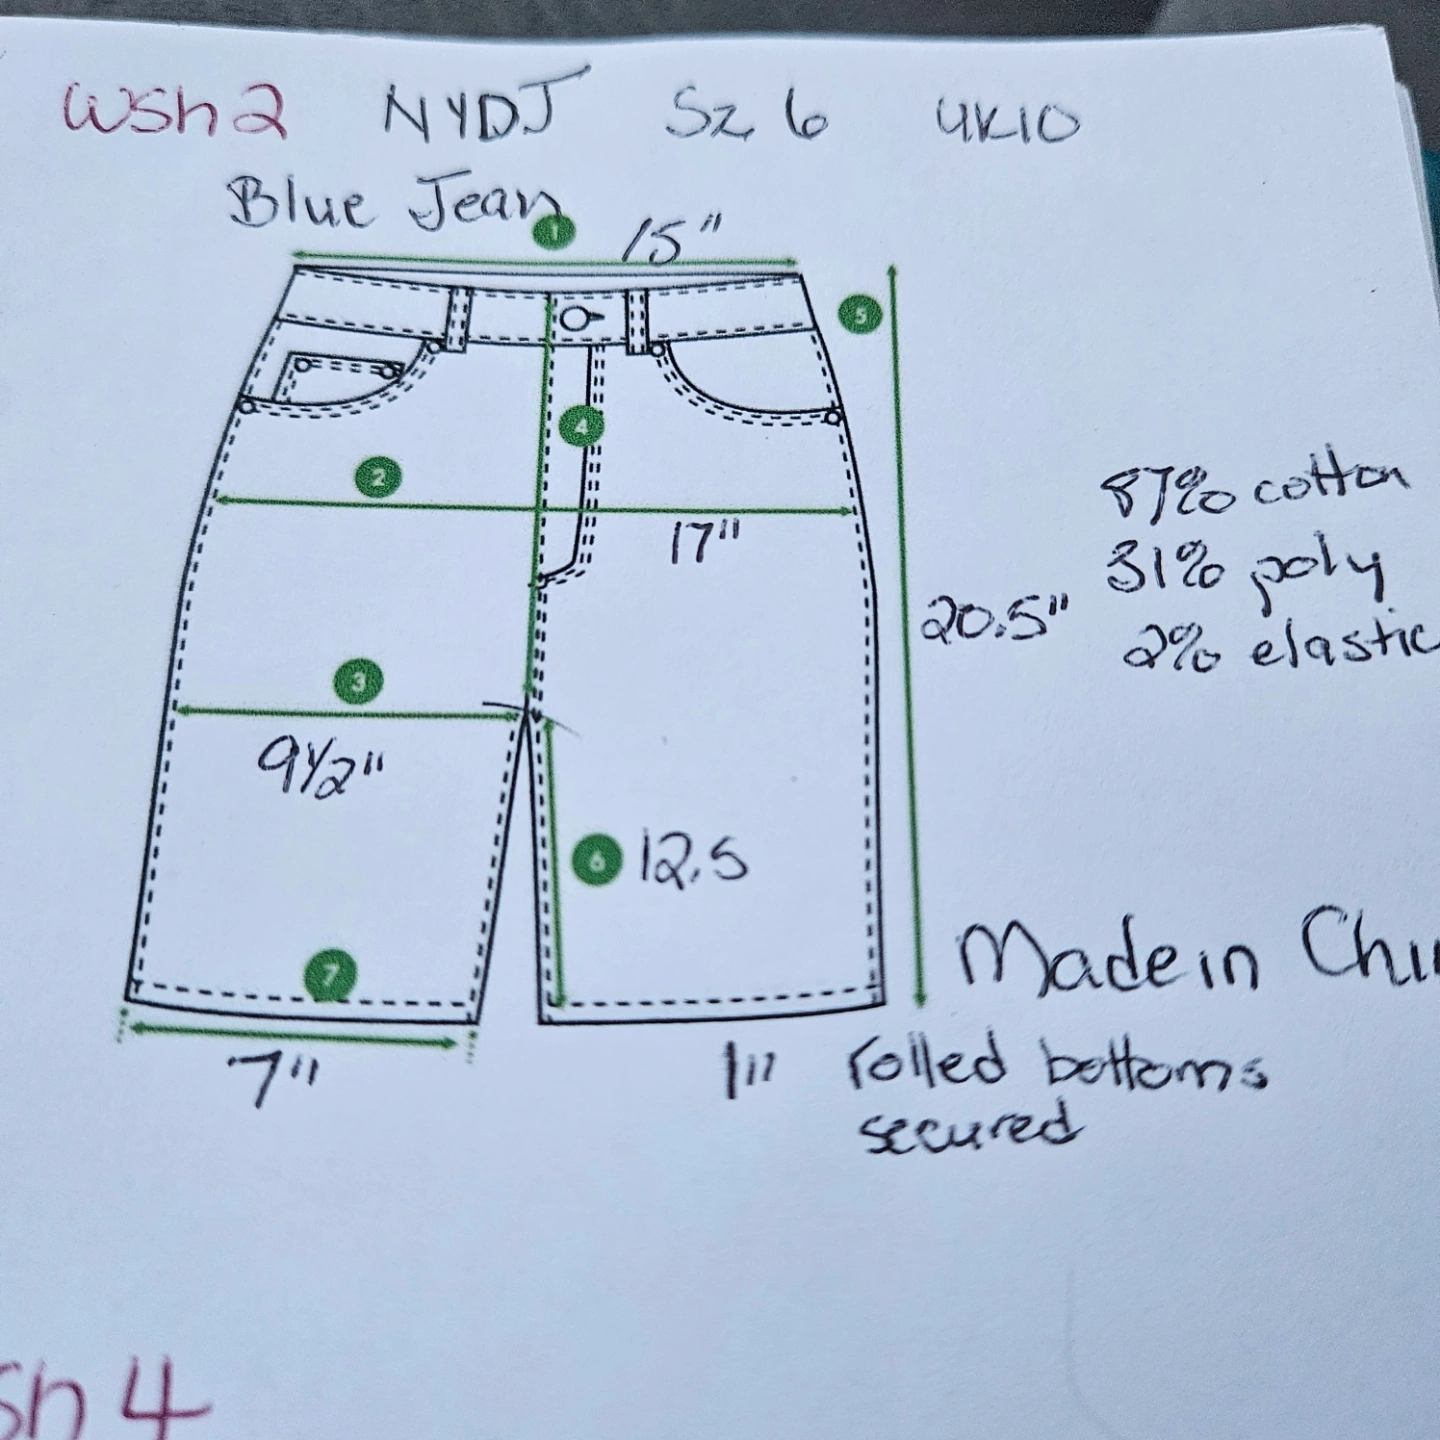 WSh2 NYDJ Sz 6 UK10
Blue Jean
1 15"
5
4
2
17"
87% cotton
31% poly
2% elastic
20.5"
3
9½"
6 12.5
7
Made in Chi
7"
1" rolled bottoms
secured
sh 4